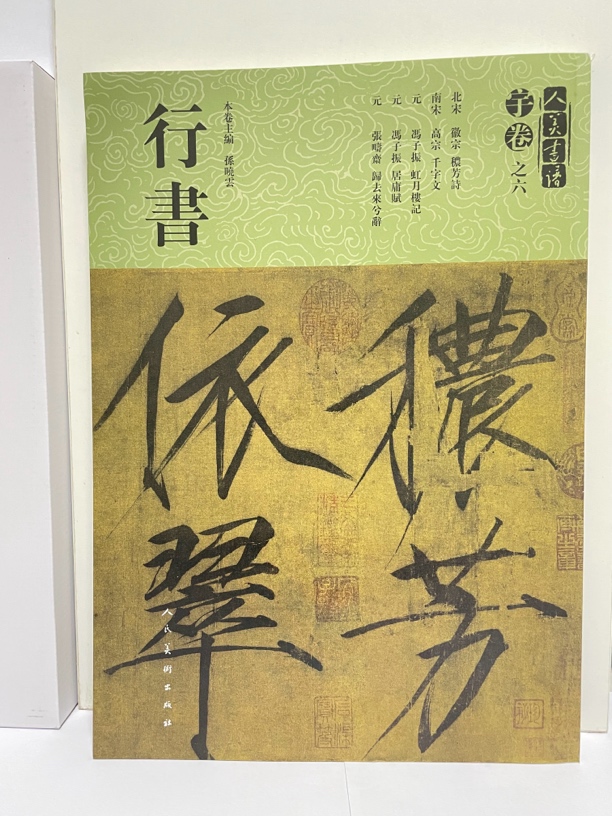 人美書譜
羊卷之六
北宋 徽宗 穠芳詩
南宋 高宗 千字文
元 馮子振 虹月樓記
元 馮子振 居庸賦
元 張疇齋 歸去來兮辭
本卷主編 孫曉雲
行書
穠芳
依翠
人民美術出版社